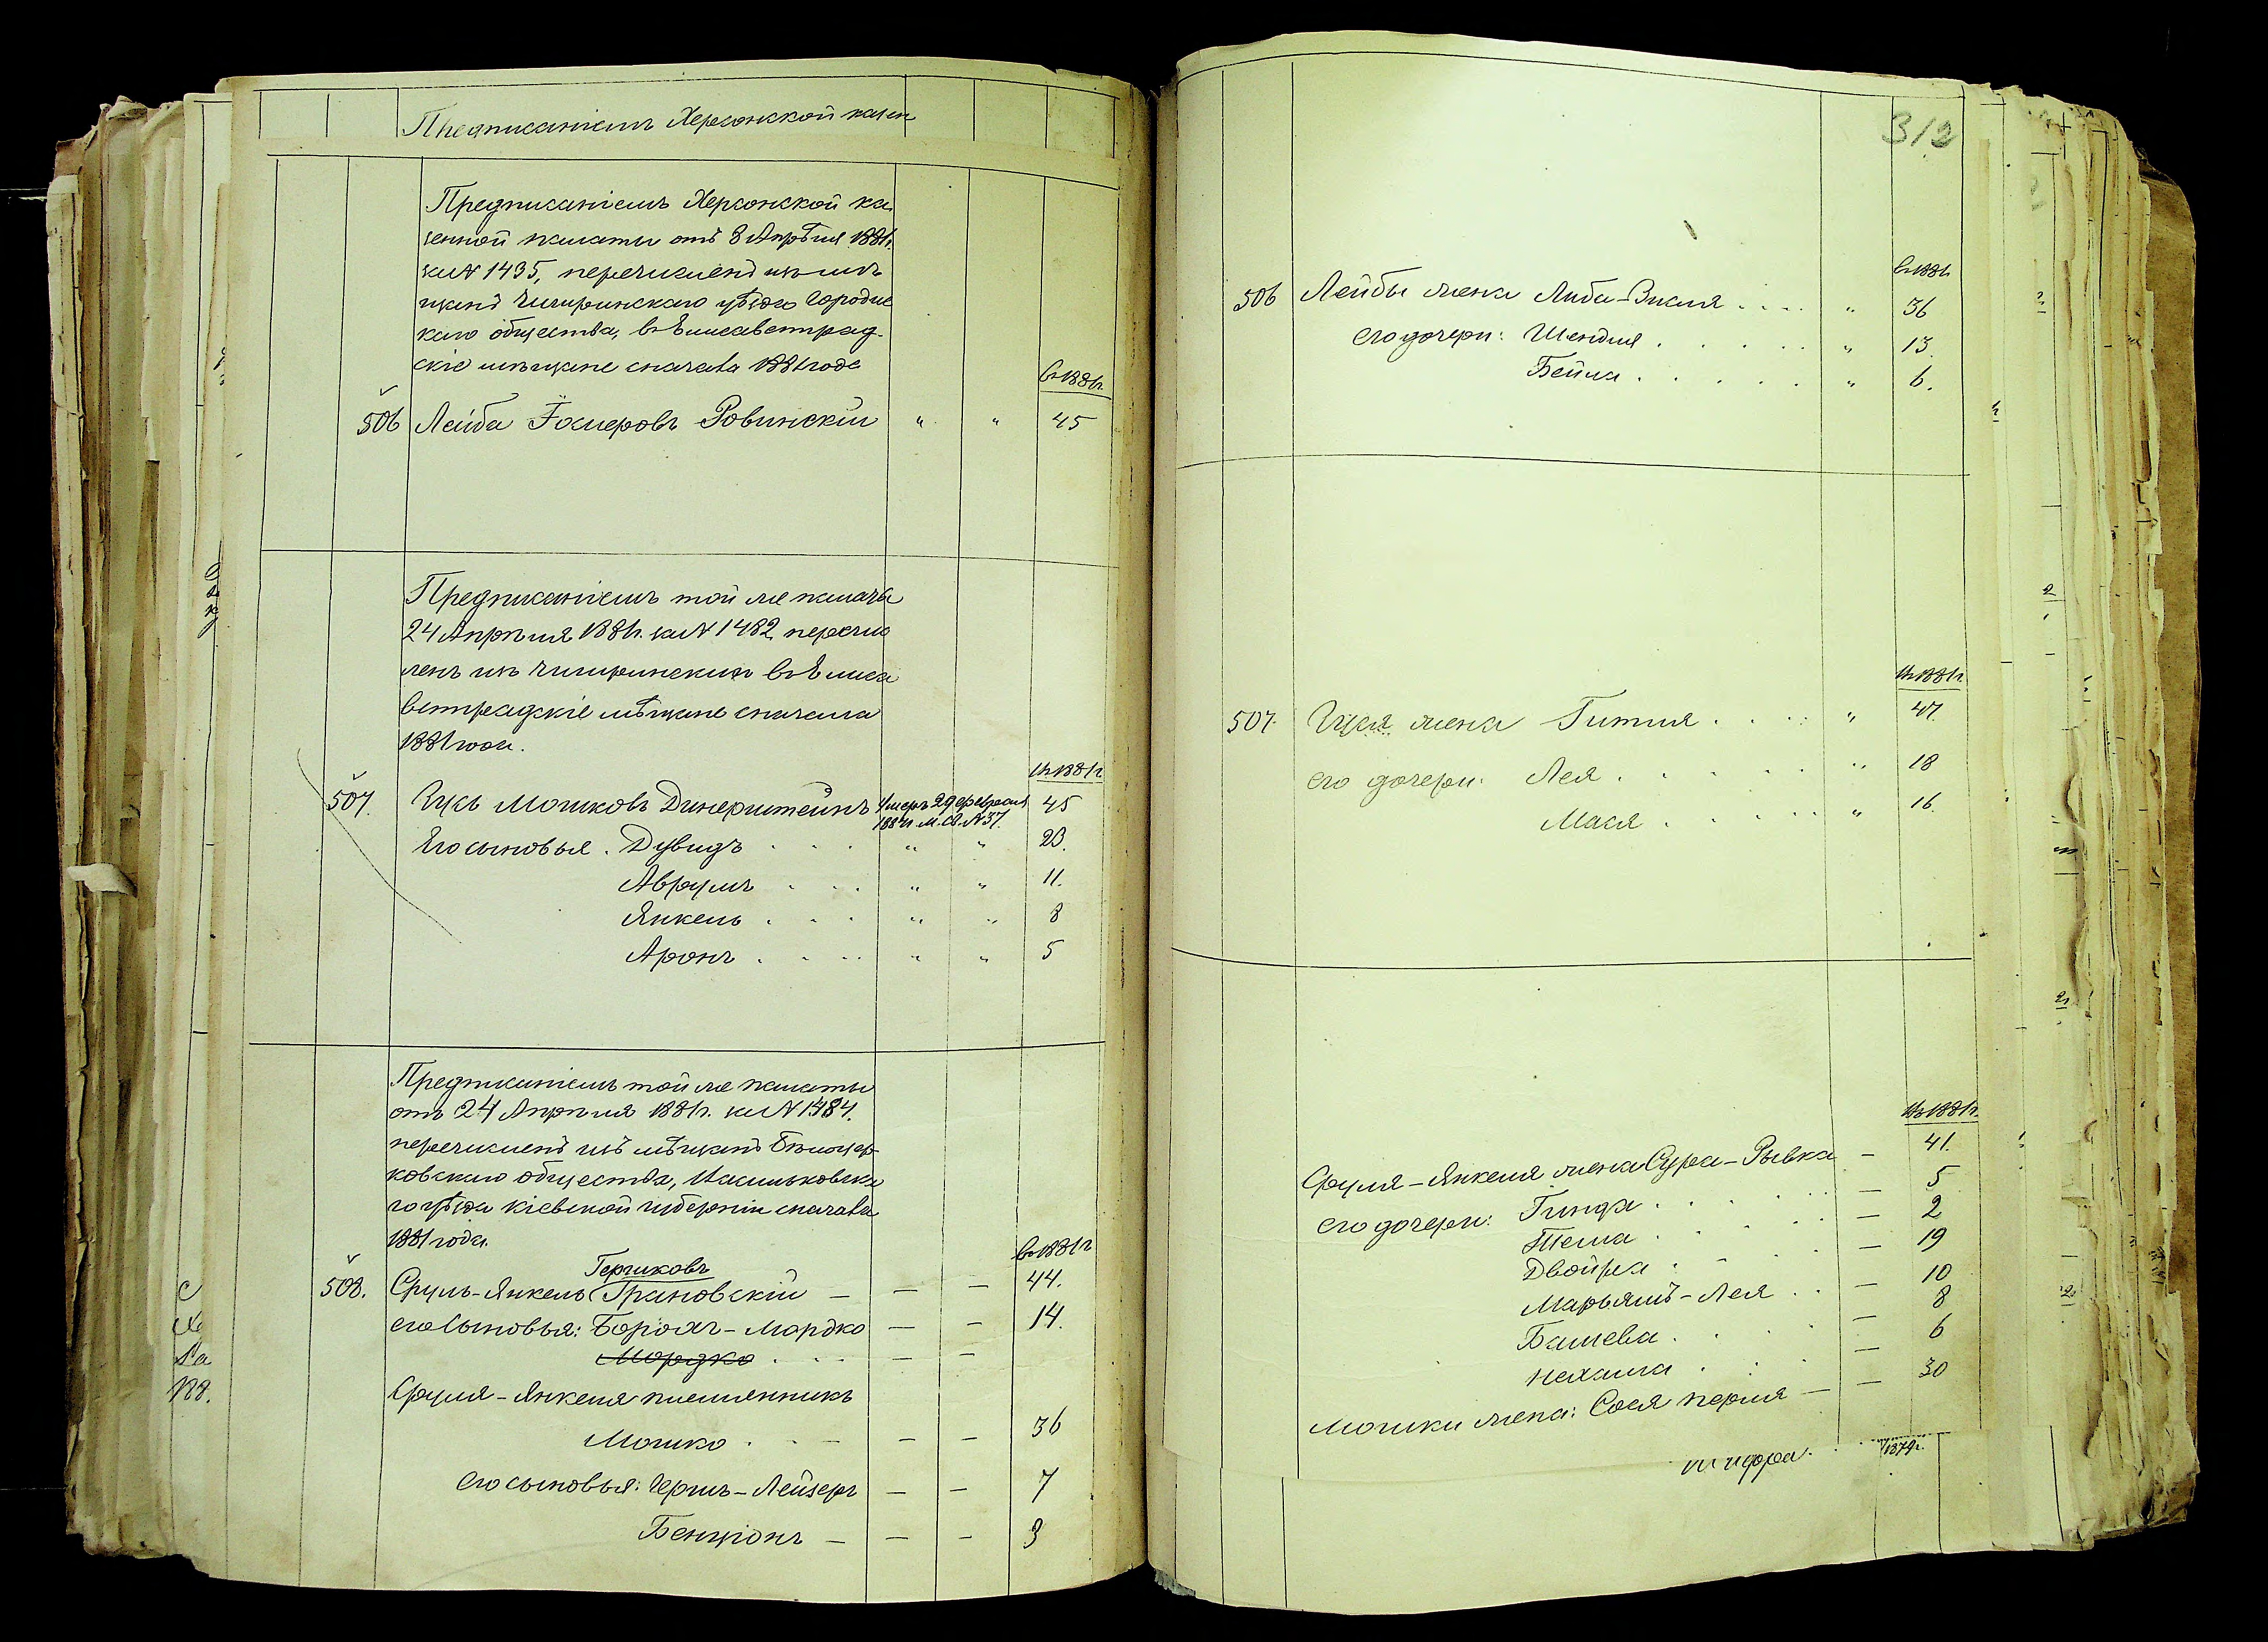 Предписаніемъ Херсонской казен
Предписаніемъ Херсонской ка
зенной палаты отъ 8 Апрѣля 1881г.
за № 1435, перечисленъ изъ мѣ
щанъ Чигиринскаго уѣзда Городис
каго общества, въ Елисаветград-
скіе мѣщане сначала 1881 года
въ 1881г.
506 Лейба Іосіеровъ Ровинскій " " 45
Предписаніемъ той же палаты
24 Апрѣля 1881г. за № 1482 перечис
ленъ изъ Чигиринскихъ въ Елиса
ветградскіе мѣщане сначала
1881 года.
въ 1881г.
507. Гусь Мошковъ Динерштейнъ Умеръ 29 февраля 45
1884г. М. С. № 37.
Его сыновья. Дувидъ . . . " " 23.
Аврумъ . . . " " 11.
Янкель . . . " " 8
Аронъ . . . " " 5
Предписаніемъ той же палаты
отъ 24 Апрѣля 1881г. за № 1484.
перечисленъ изъ мѣщанъ Бѣлоцер-
ковскаго общества, Васильковска
го уѣзда Кіевской губерніи сначала
1881 года.
въ 1881г
Гершковъ
508. Сруль-Янкель Грановскій — — — 44.
его сыновья: Борохъ-Мордко — — 14.
Мордко . . . — —
Сруля-Янкеля племянникъ
Мошко . . — — — 36
его сыновья: Гершъ-Лейзеръ — — 7
Бенціонъ — — — 3
312
въ 1881г
506 Лейбы жена Либа-Вихля . . . . " 36
его дочери: Шендля . . . . . " 13.
Бейла . . . . . " 6.
въ 1881г.
507. Гуся жена Гитля . . . . " 47.
его дочери: Лея . . . . . " 18
Мася . . . . . " 16.
въ 1881г.
Сруля-Янкеля жена Сура-Рывка — 41.
его дочери: Гинда . . . . . — 5
Тема . . . . . — 2
Двойра . . . . — 19
Марьямъ-Лея . . — 10
Башева . . . . — 8
Нехама . . . — 6
Мошки жена: Сося Перля — — 30
1879г.